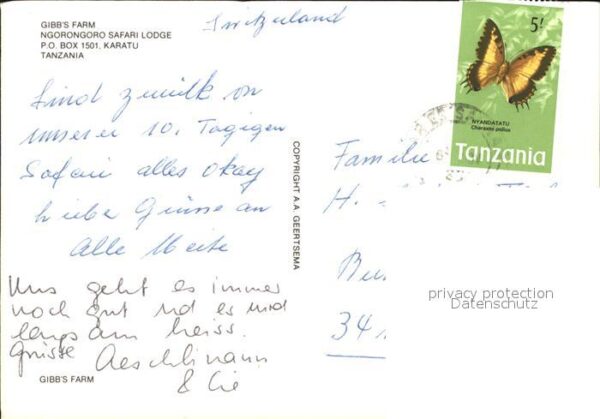 GIBB'S FARM
NGORONGORO SAFARI LODGE
P.O. BOX 1501, KARATU
TANZANIA
Switzerland
Sind zurück von
unserer 10. Tagigen
Safari alles Okay
Liebe Grüsse an
Alle Meite
Uns geht es immer
noch gut und es wird
langsam heiss.
Grüsse Aeschlimann
& Cie
GIBB'S FARM
COPYRIGHT A.A. GEERTSEMA
5/-
NYANDATATU
Charaxes pollux
Tanzania
Familie
H.
34
privacy protection
Datenschutz